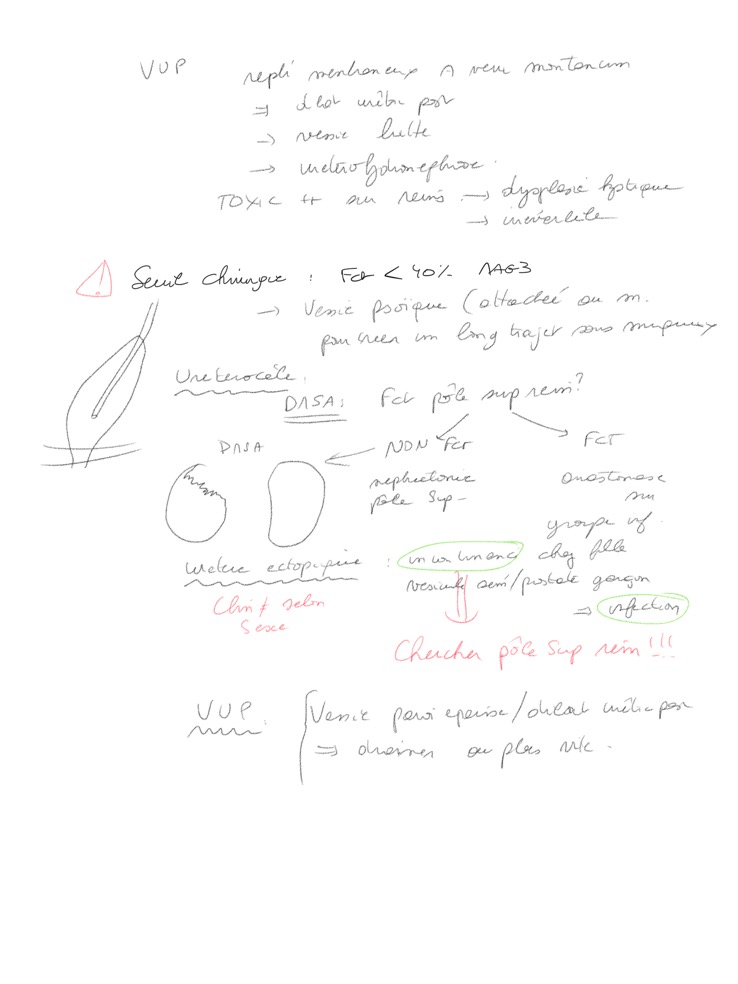 VUP repli membraneux A veru montanum
⇒ dilat urètre post
→ vessie lutte
→ uretérohydronephrose.
TOXIC ++ sur reins → dysplasie kystique
→ inévérsible
Seuil chirurgie : Fct < 40% MAG3
→ Vessie psoïque (attachée au m.
pour creer un long trajet sous muqueux
Uretérocèle.
DMSA : Fct pôle sup rein?
DMSA NON Fct FCT
nephrectomie
pôle Sup -
anastomose
sur
groupe inf.
uretère ectopique : incontinence chez fille
vésicule sémi/prostate garçon
⇒ infection
Clin ≠ selon
Sexe
Chercher pôle Sup rein !!!
VUP. Vessie paroi epaisse/dilat urètre post
⇒ drainer au plus vite.